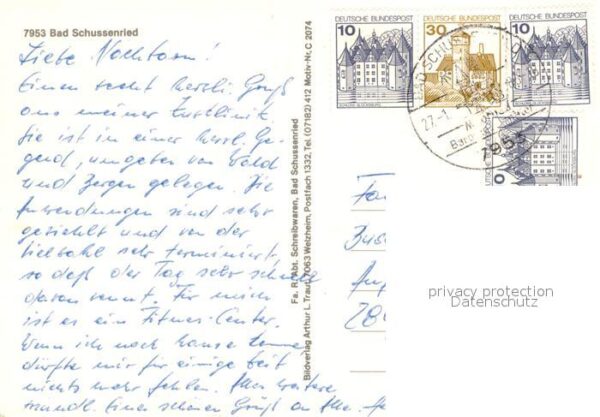 7953 Bad Schussenried
Liebe
Einen recht herzl. Gruß
aus meiner Kurklinik
Sie ist in einer herrl. Ge-
gend, umgeben von Wald
und Bergen gelegen. Die
Anwendungen sind sehr
gezielt und von der
sehr terminiert,
so daß der Tag sehr schnell
davon rennt. Für mich
ist es ein Fitness-Center.
Wenn ich nach Hause komme
dürfte mir für einige Zeit
nichts mehr fehlen. Alles weitere
mündl. Einen schönen Gruß an
Fa. R. Abt. Schreibwaren, Bad Schussenried
Bildverlag Arthur L. Traut, 7063 Welzheim, Postfach 1332, Tel. (07182) 412 Motiv-Nr. C 2074
DEUTSCHE BUNDESPOST
10
SCHLOSS GLÜCKSBURG
DEUTSCHE BUNDESPOST
30
DEUTSCHE BUNDESPOST
10
7953
privacy protection
Datenschutz